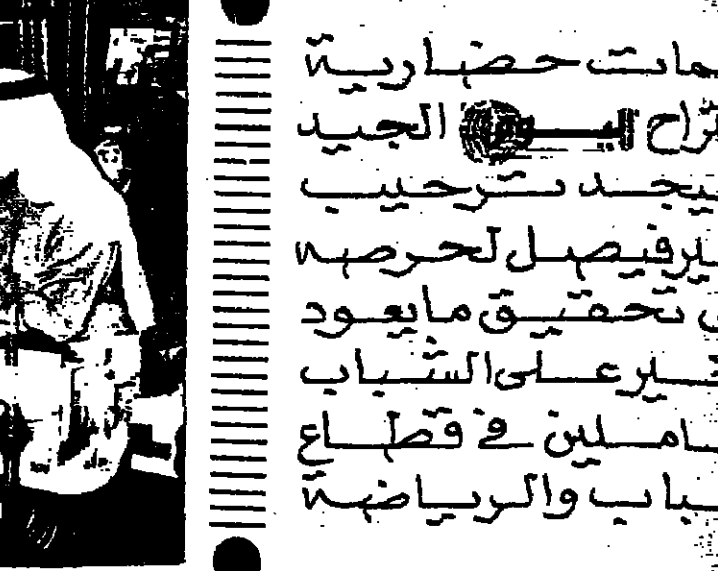 ـمات حضارية
ـراح اليـوم الجيد
ـيجد ترحيب
ـير فيصل لحرصه
ـى تحقيق ما يعود
ـير على الشباب
ـاملين في قطاع
ـباب والرياضة